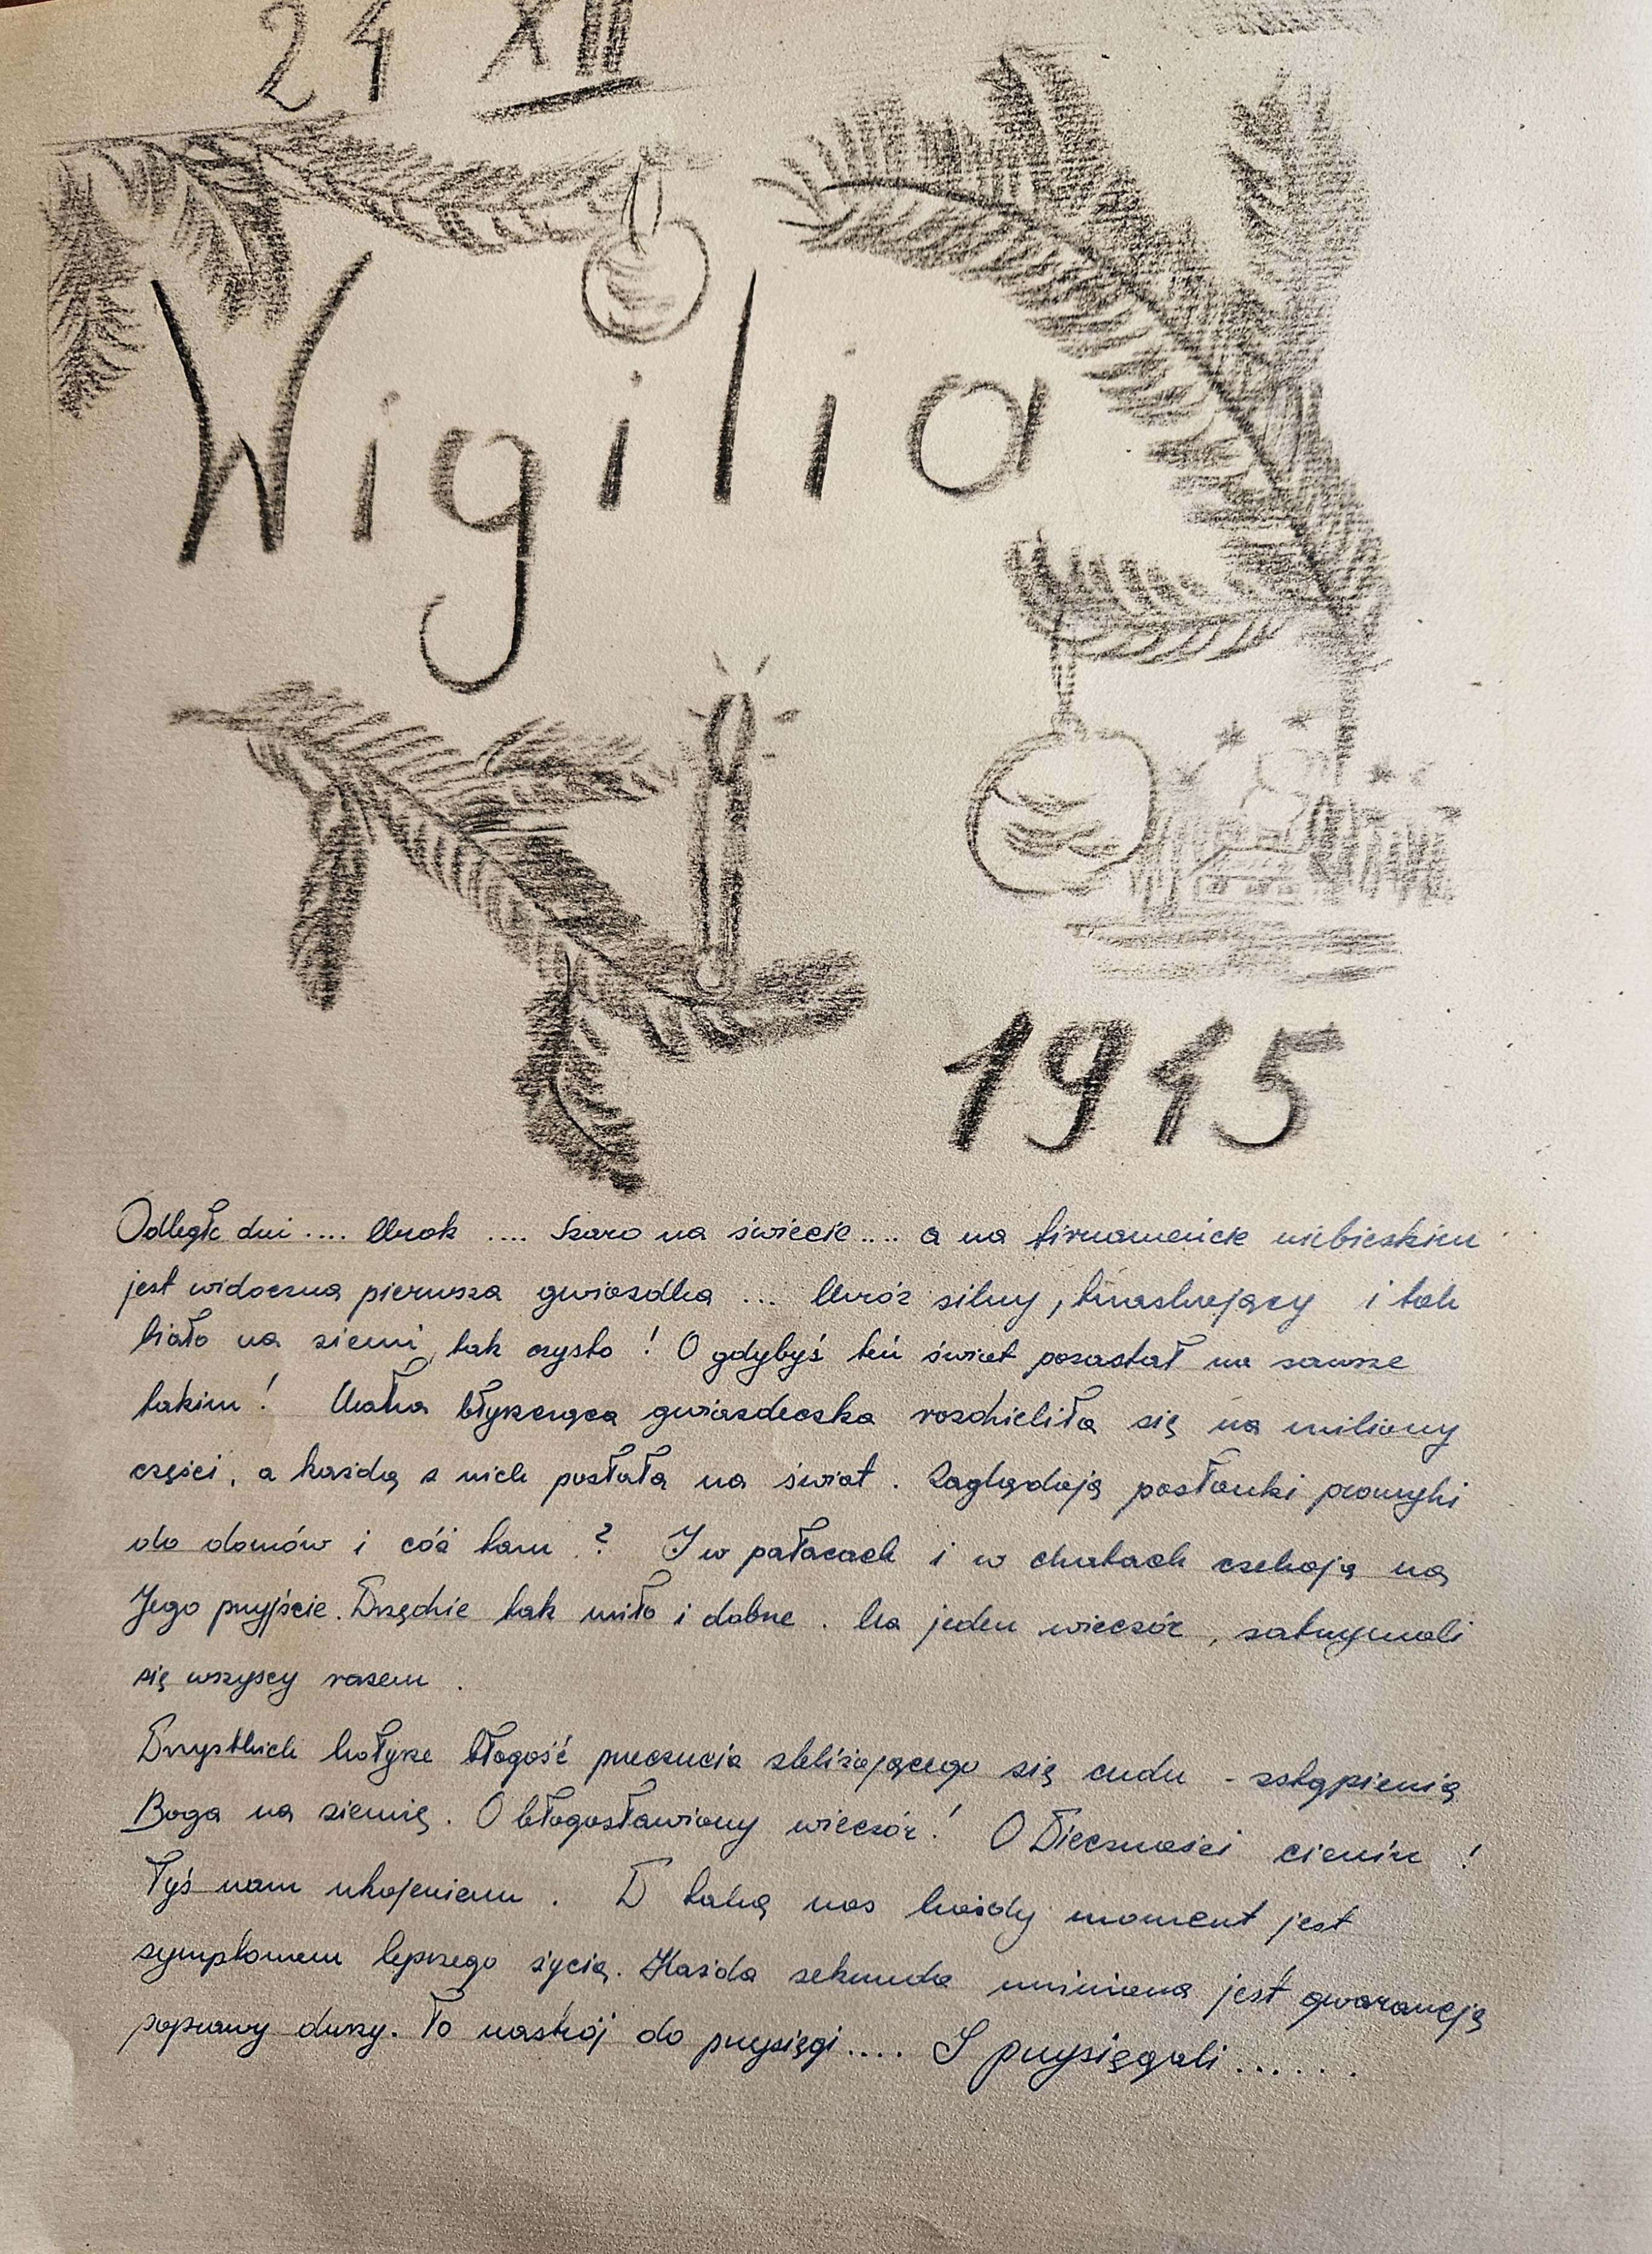 24 XII
Wigilia
1945
Odległe dni .... Mrok .... Szaro na świecie .... a na firmamencie niebieskim
jest widoczna pierwsza gwiazdka ... Mróz silny, trzaskający i tak
biało na ziemi, tak czysto ! O gdybyś ten świat pozastał na zawsze
takim ! Mała błyszcząca gwiazdeczka rozdzieliła się na miliony
części, a każdą z nich posłała na świat . Zaglądają posłanki promyki
do domów i cóż tam ? I w pałacach i w chatach czekają na
Jego przyjście. Wszędzie tak miło i dobrze . Na jeden wieczór, zatrzymali
się wszyscy razem .
Wszystkich kołysze błogość przeczucia zbliżającego się cudu - zstąpienia
Boga na ziemię . O błogosławiony wieczór ! O Wieczności cieniu !
Tyś nam ukojeniem . W taką noc każdy moment jest
symptomem lepszego życia. Każda sekunda miniona jest gwarancją
poprawy duszy. To nastrój do przysięgi .... I przysięgali ......